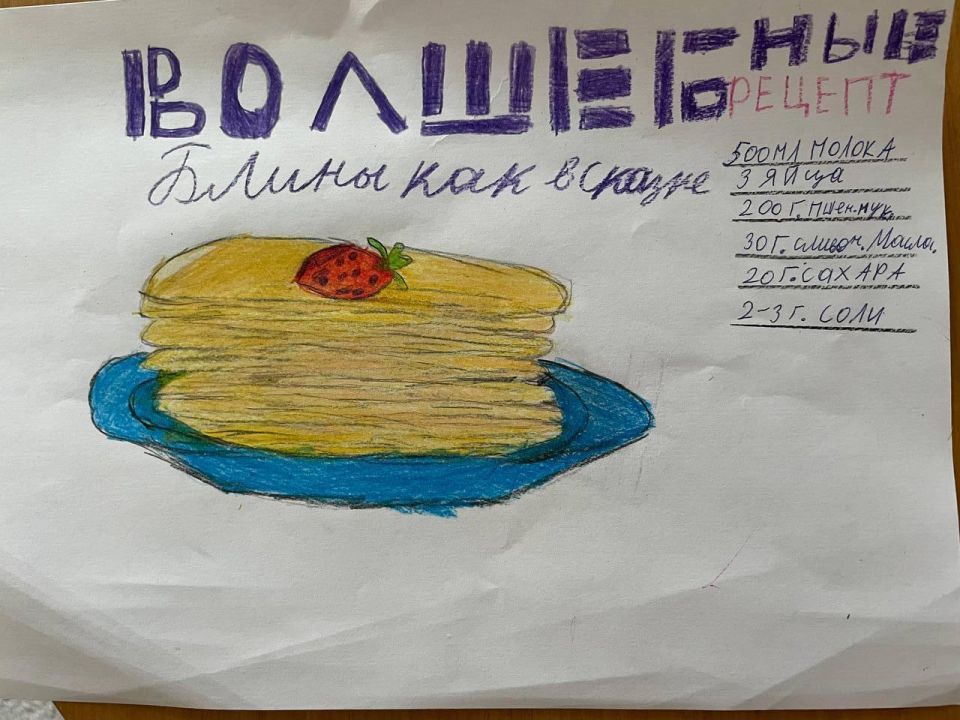 ВОЛШЕБНЫЕ
Блины как в сказке
РЕЦЕПТ
500МЛ МОЛОКА
3 ЯЙЦа
200Г. пшен.мук.
30Г. сливоч. Масла.
20Г. САХАРА
2-3г. СОЛИ